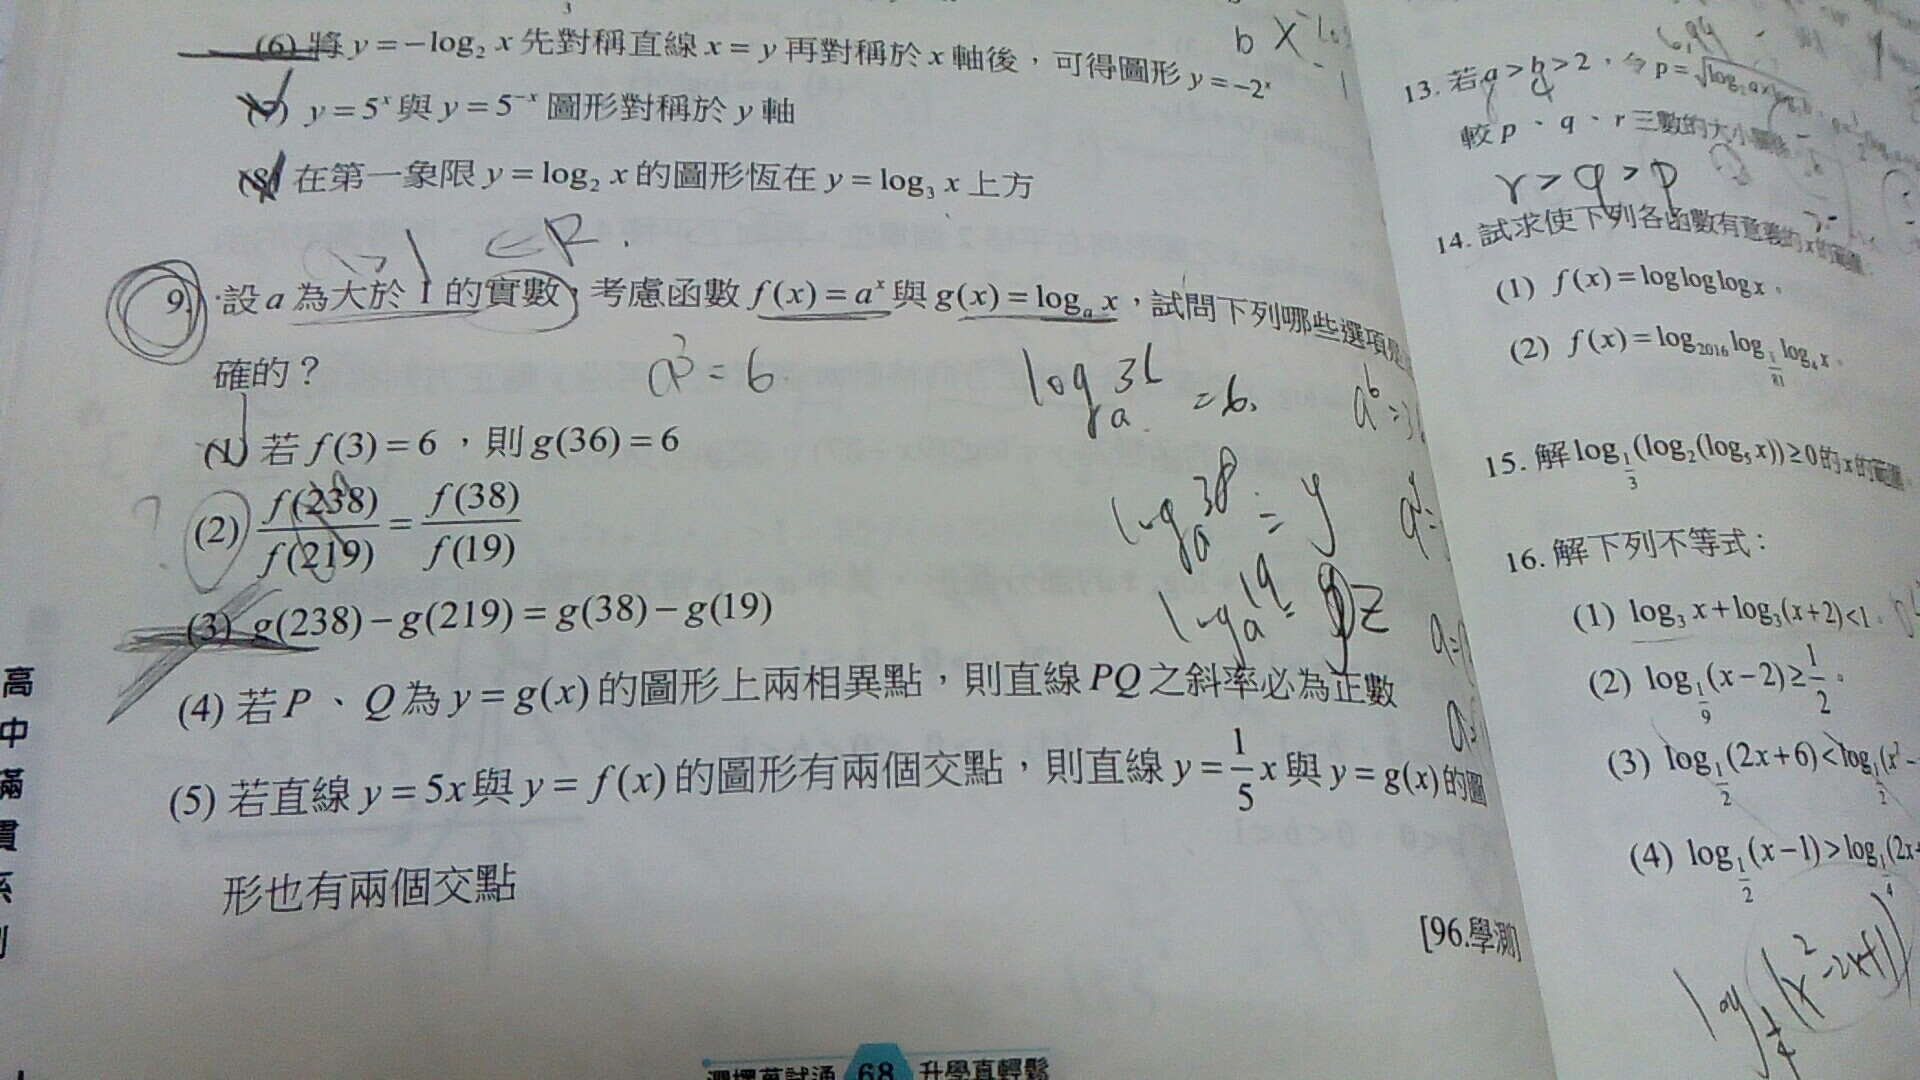 (6) 將 y = −log₂ x 先對稱直線 x = y 再對稱於 x 軸後，可得圖形 y = −2ˣ
y = 5ˣ 與 y = 5⁻ˣ 圖形對稱於 y 軸
(8) 在第一象限 y = log₂ x 的圖形恆在 y = log₃ x 上方
9. 設 a 為大於 1 的實數，考慮函數 f(x) = aˣ 與 g(x) = logₐ x，試問下列哪些選項是
確的？
a³ = 6
logₐ 36 = 6
(1) 若 f(3) = 6，則 g(36) = 6
(2) f(238)/f(219) = f(38)/f(19)
logₐ 38 = y
logₐ 19 = z
(3) g(238) − g(219) = g(38) − g(19)
(4) 若 P、Q 為 y = g(x) 的圖形上兩相異點，則直線 PQ 之斜率必為正數
(5) 若直線 y = 5x 與 y = f(x) 的圖形有兩個交點，則直線 y = 1/5 x 與 y = g(x) 的圖
形也有兩個交點
[96.學測]
68 升學真輕鬆
高中滿貫系列
13. 若 a > b > 2，令 p =
較 p、q、r 三數的大小
r > q > p
14. 試求使下列各函數有意義的 x 的範圍
(1) f(x) = log log log x。
(2) f(x) = log₂₀₁₆ log_(1/81) log₄ x。
15. 解 log_(1/3)(log₂(log₅ x)) ≥ 0 的 x 的範圍。
16. 解下列不等式：
(1) log₃ x + log₃(x+2) < 1。
(2) log_(1/9)(x−2) ≥ 1/2。
(3) log_(1/2)(2x+6) < log_(1/2)(x²−
(4) log_(1/2)(x−1) > log_(1/4)(2x+
log_(1/4)(x²−2x+1)